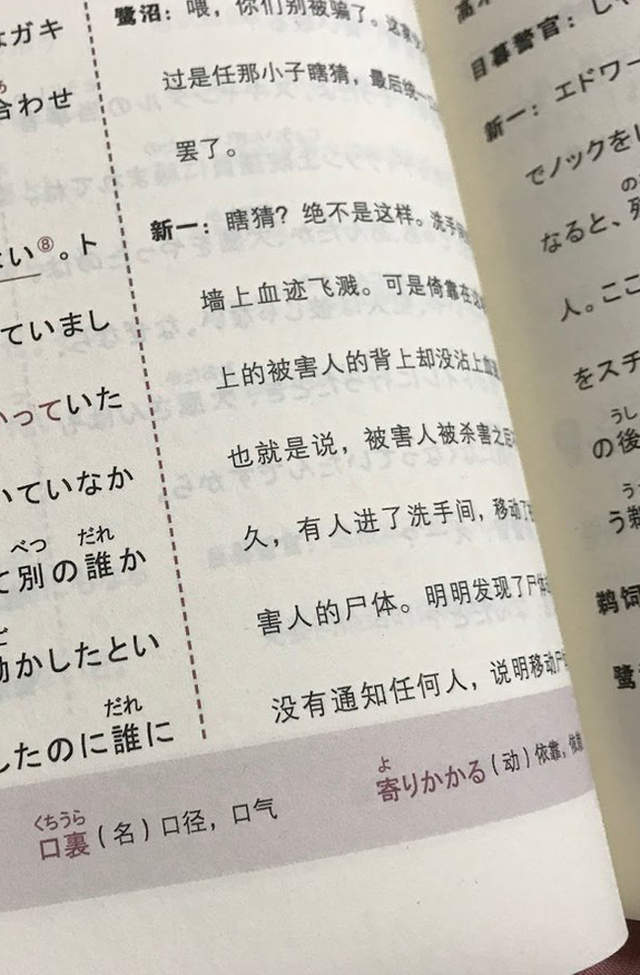 ガキ
合わせ
い⑧。ト
ていまし
いって いた
いていなか
べつ だれ
て別の誰か
動かしたとい
だれ
したのに誰に
鹭沼：喂，你们别被骗了。这
过是任那小子瞎猜，最后统一
罢了。
新一：瞎猜？绝不是这样。洗手
墙上血迹飞溅。可是倚靠在
上的被害人的背上却没沾上血
也就是说，被害人被杀害之后
久，有人进了洗手间，移动了
害人的尸体。明明发现了尸体
没有通知任何人，说明移动尸
くちうら
口裏（名）口径，口气
よ
寄りかかる（动）依靠，
目暮警官：し
新一：エドワー
でノックをし
なると、
人。ここ
をスチ
うし
の後
う
鹈饲
鹭